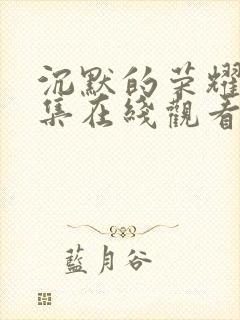 沉默的荣耀
集在綫觀看
藍月谷